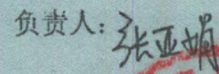 负责人：张亚娟